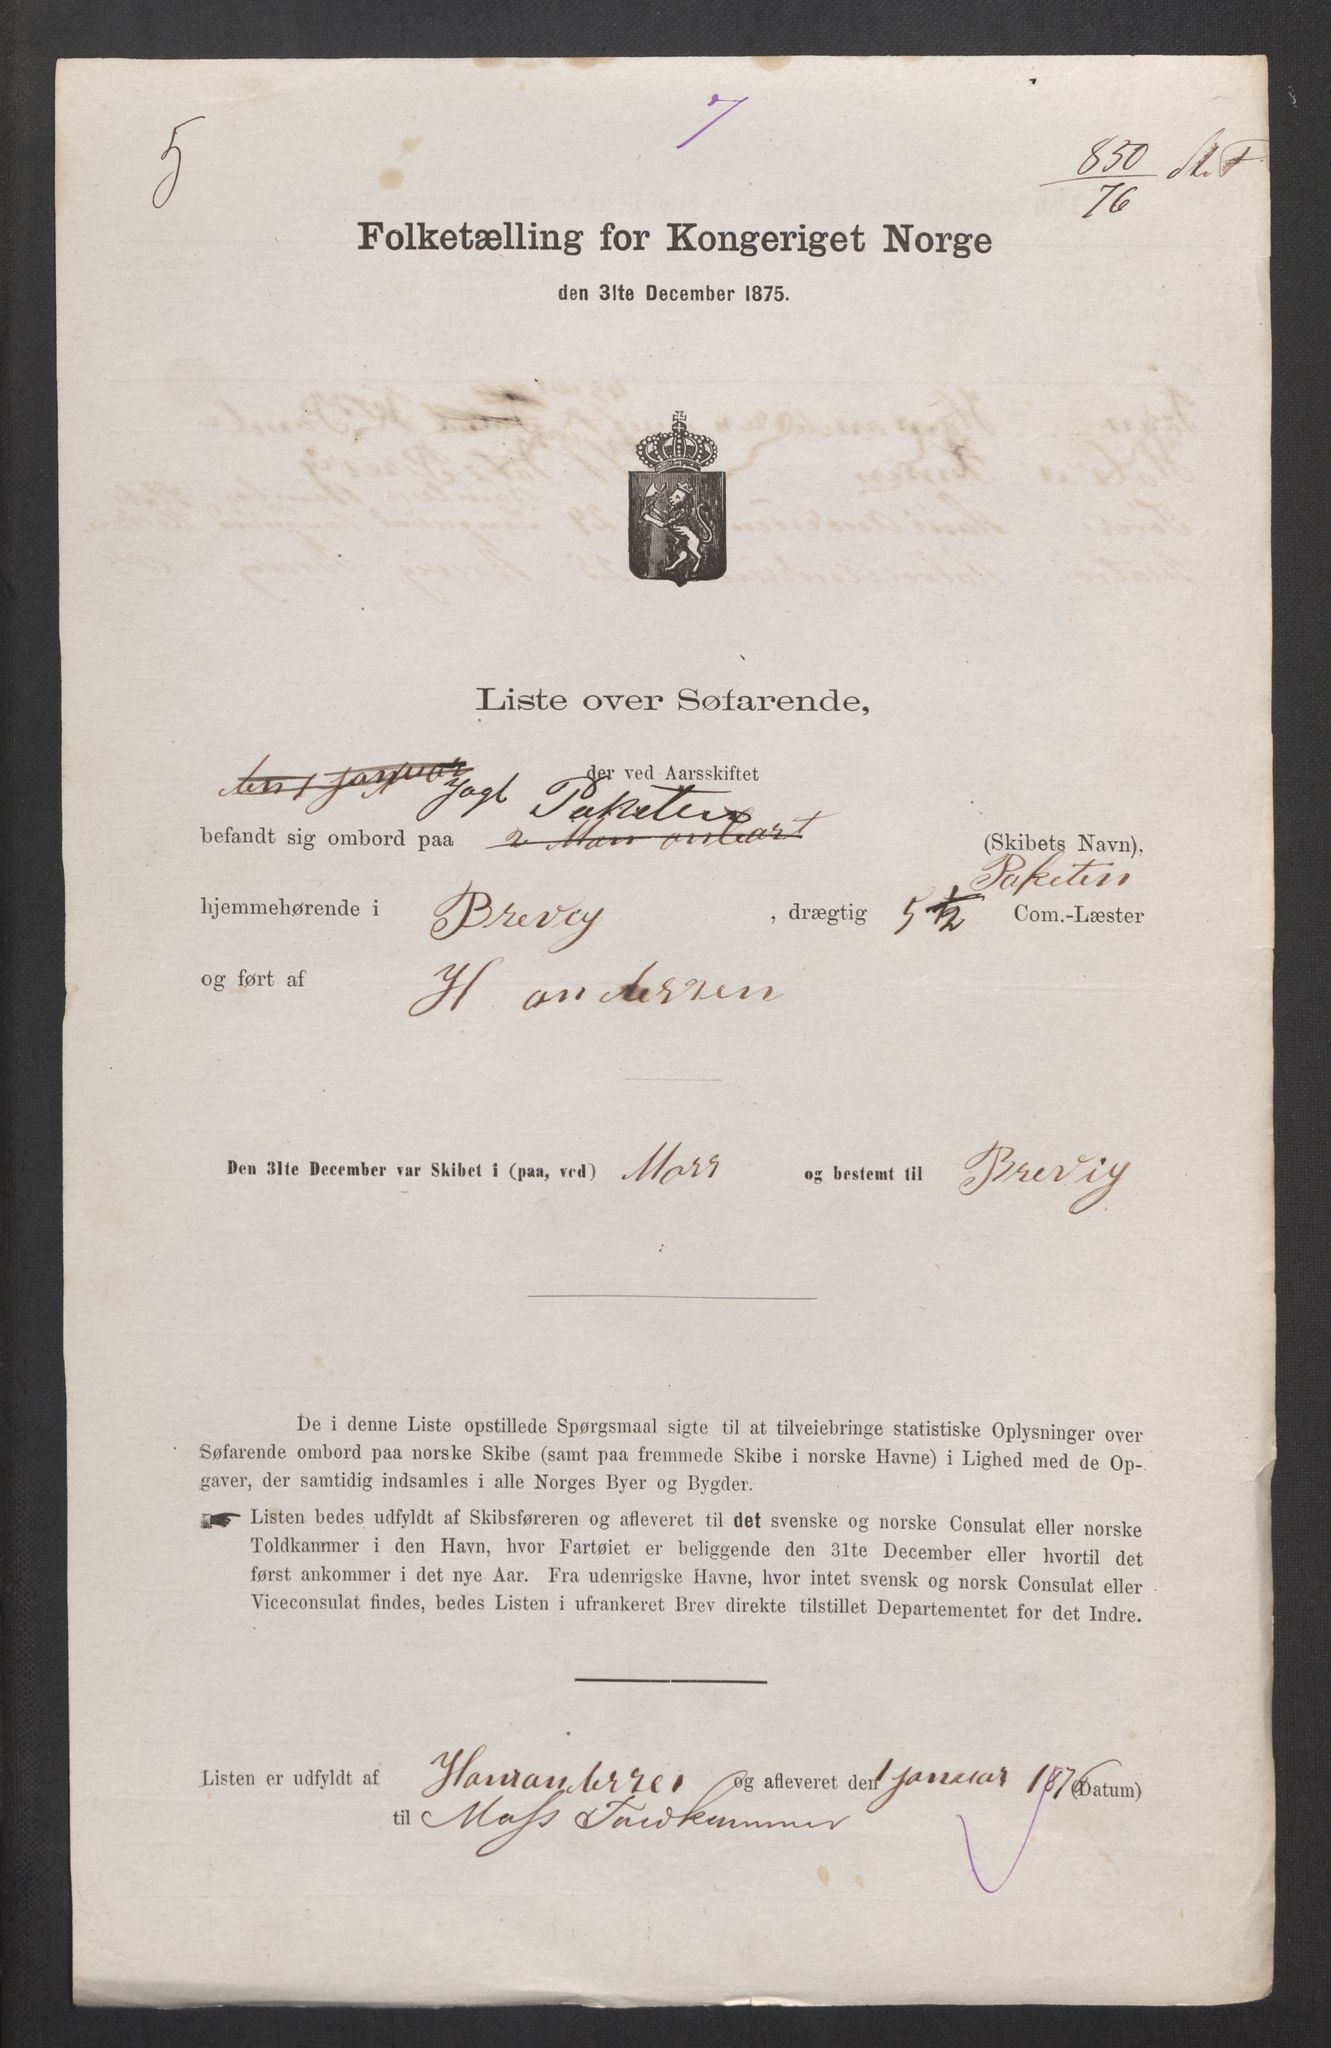 5
7
850
76
Folketælling for Kongeriget Norge
den 31te December 1875.
Liste over Søfarende,
den 1 januar
der ved Aarsskiftet
Jagt Paketen
befandt sig ombord paa 2 Man ombort (Skibets Navn),
Paketen
hjemmehørende i Brevig , drægtig 5 1/2 Com.-Læster
og ført af H andersen
Den 31te December var Skibet i (paa, ved) Moss og bestemt til Brevig
De i denne Liste opstillede Spørgsmaal sigte til at tilveiebringe statistiske Oplysninger over
Søfarende ombord paa norske Skibe (samt paa fremmede Skibe i norske Havne) i Lighed med de Op-
gaver, der samtidig indsamles i alle Norges Byer og Bygder.
Listen bedes udfyldt af Skibsføreren og afleveret til det svenske og norske Consulat eller norske
Toldkammer i den Havn, hvor Fartøiet er beliggende den 31te December eller hvortil det
først ankommer i det nye Aar. Fra udenrigske Havne, hvor intet svensk og norsk Consulat eller
Viceconsulat findes, bedes Listen i ufrankeret Brev direkte tilstillet Departementet for det Indre.
Listen er udfyldt af Hans andersen og afleveret den 1 januar 1876 (Datum)
til Moss Toldkammer